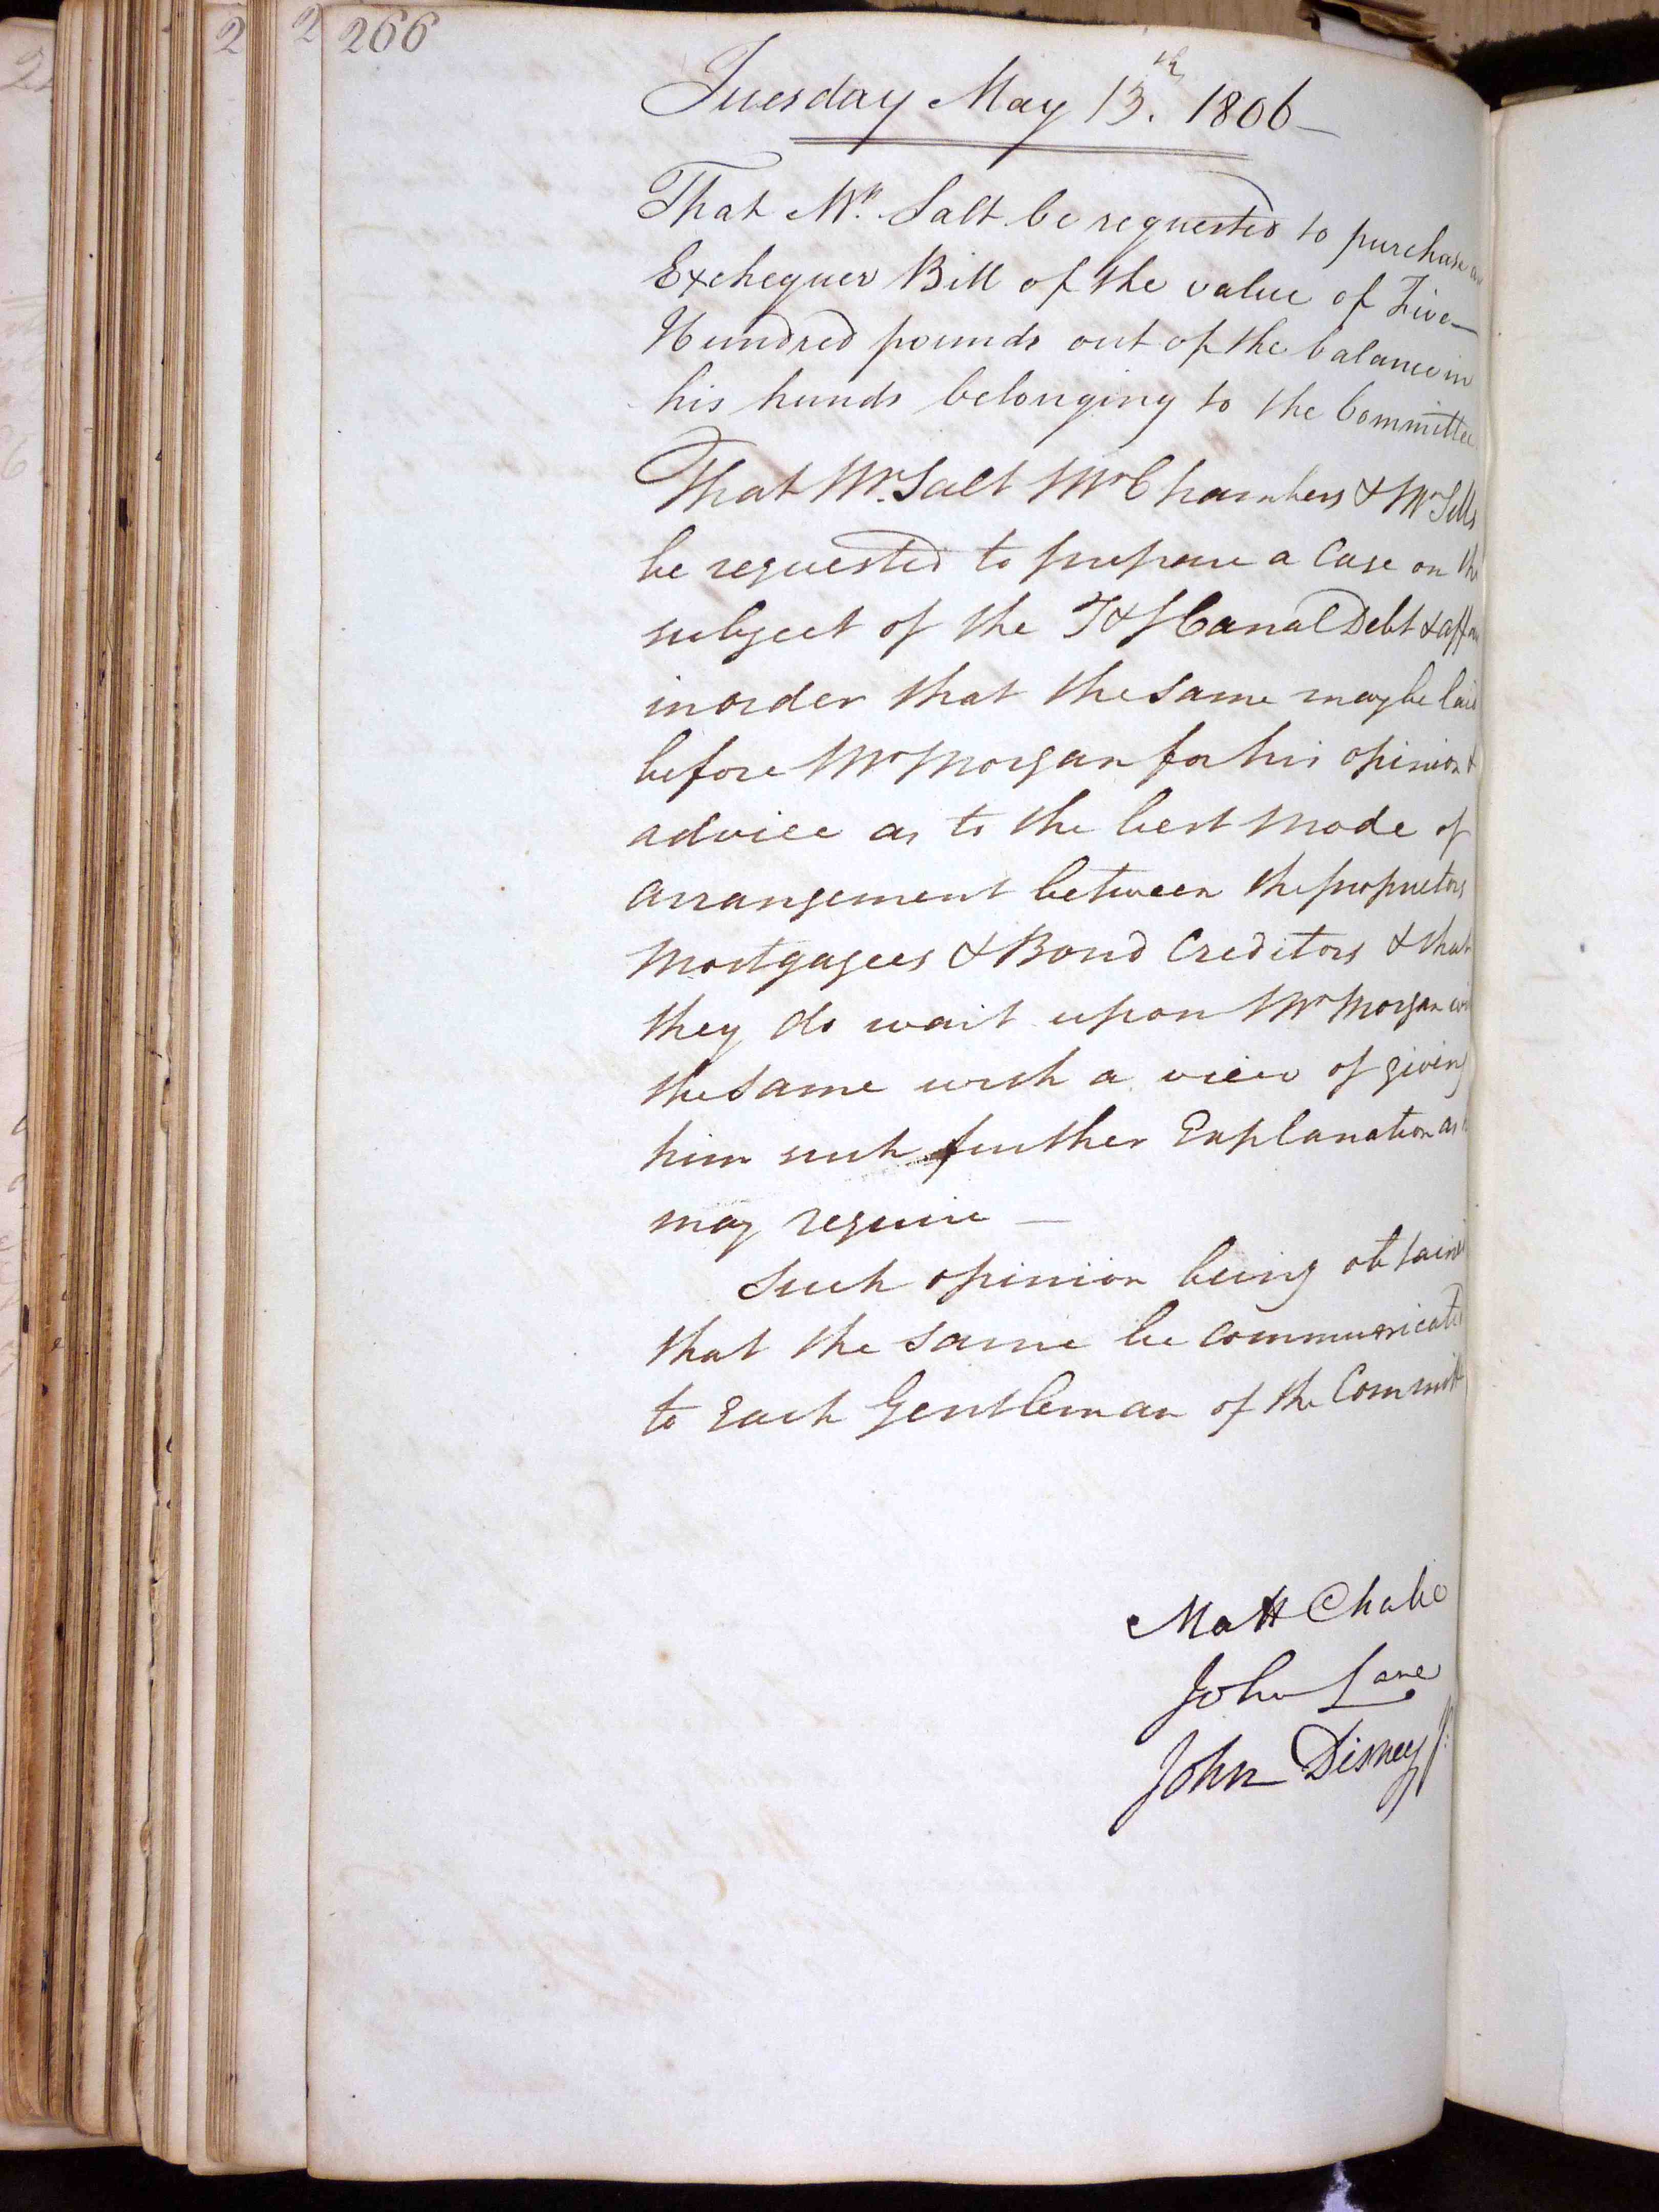 266
Tuesday May 13th. 1806
That Mr. Salt be requested to purchase an
Exchequer Bill of the value of Five
Hundred pounds out of the balance in
his hands belonging to the Committee
That Mr. Salt Mr Chambers & Mr Sells
be requested to prepare a Case on the
subject of the T & S Canal Debt &
in order that the same may be laid
before Mr Morgan for his opinion &
advice as to the best Mode of
arrangement between the proprietors
Mortgagees & Bond Creditors & that
they do wait upon Mr Morgan
the same with a view of giving
him such further Explanation as
may require —
Such opinion being obtained
that the same be communicated
to Each Gentleman of the Committ
Matt Chabe
John Lane
John Disney Jr.